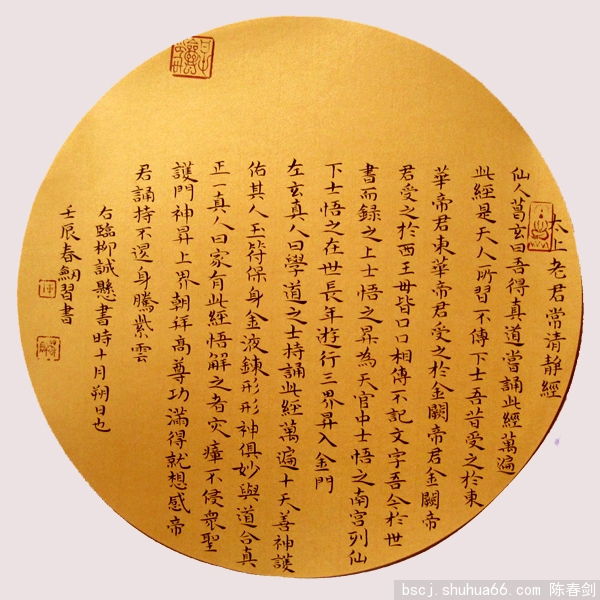 太上老君常清靜經
仙人葛玄曰吾得真道當誦此經萬遍
此經是天人所習不傳下士吾昔受之於東
華帝君東華帝君受之於金闕帝君金闕帝
君受之於西王母皆口口相傳不記文字吾今於世
書而録之上士悟之昇為天官中士悟之南宮列仙
下士悟之在世長年遊行三界昇入金門
左玄真人曰學道之士持誦此經萬遍十天善神護
佑其人玉符保身金液鍊形形神俱妙與道合真
正一真人曰家有此經悟解之者灾瘴不侵衆聖
護門神昇上界朝拜高尊功滿得就想感帝
君誦持不退身騰紫雲
右臨柳誠懸書時十月朔日也
壬辰春習書
bscj.shuhua66.com 陈春剑